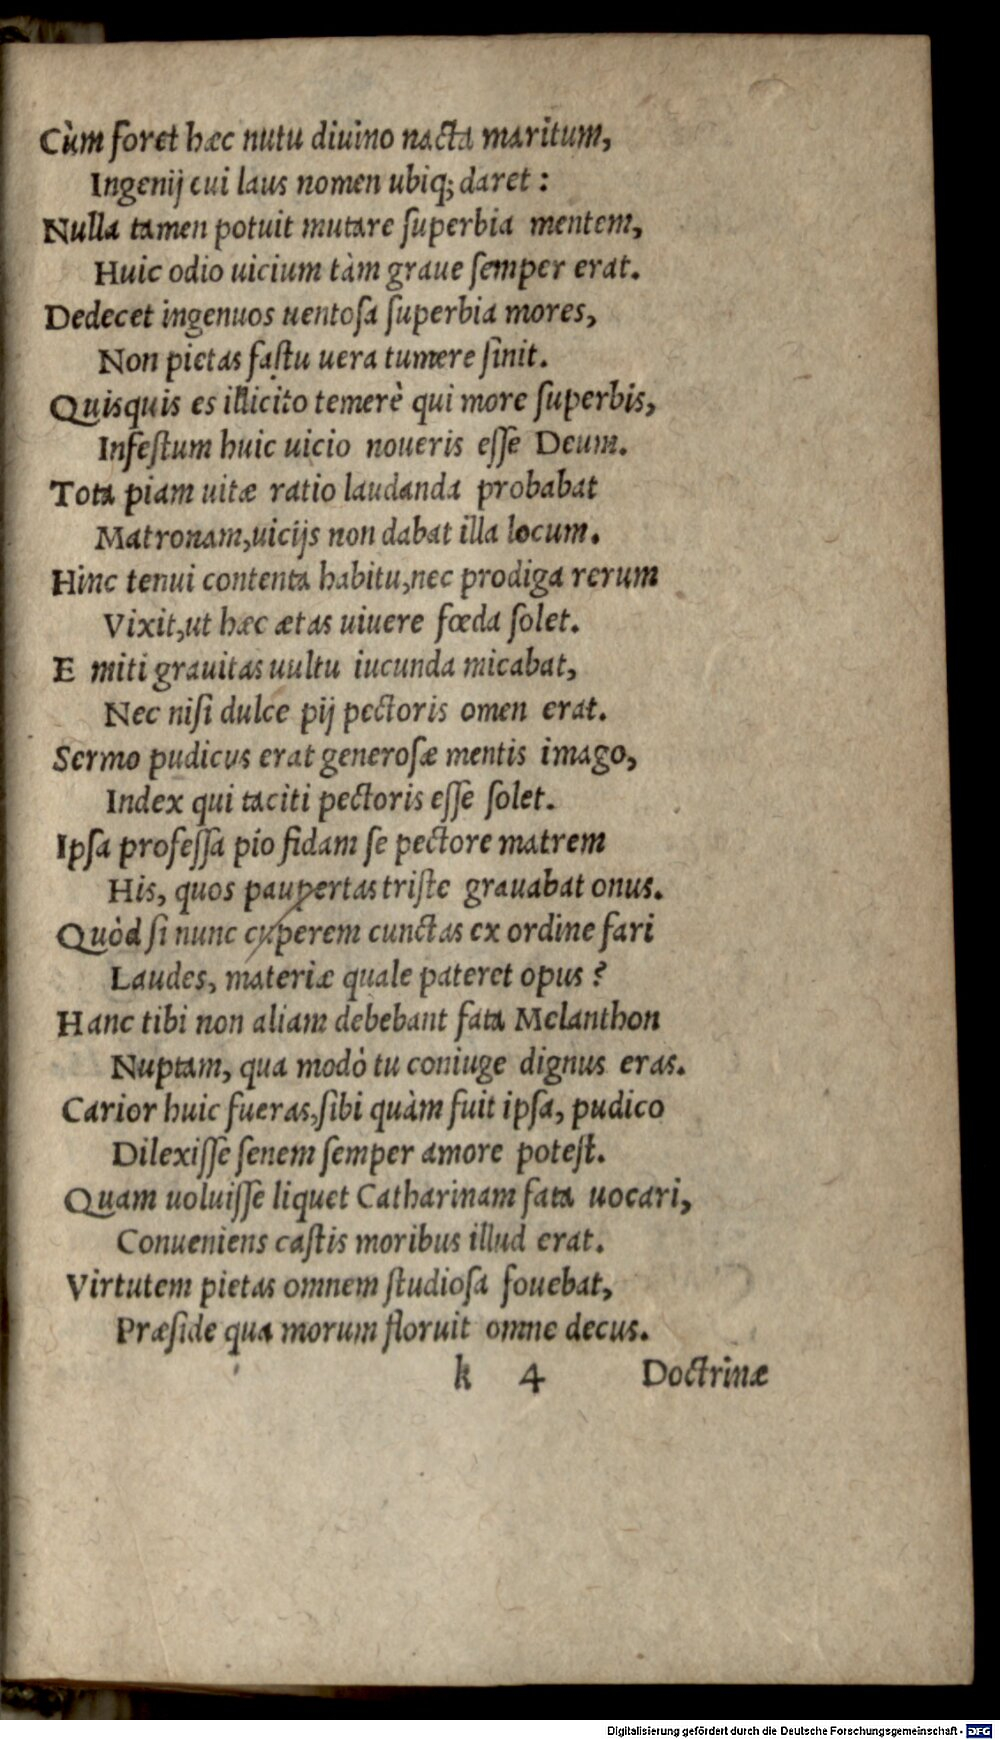 Cùm foret hæc nutu diuino nacta maritum,
Ingenij cui laus nomen ubiq; daret :
Nulla tamen potuit mutare superbia mentem,
Huic odio uicium tàm graue semper erat.
Dedecet ingenuos uentosa superbia mores,
Non pietas fastu uera tumere sinit.
Quisquis es illicito temerè qui more superbis,
Infestum huic uicio noueris esse Deum.
Tota piam uitæ ratio laudanda probabat
Matronam, uicijs non dabat illa locum.
Hinc tenui contenta habitu, nec prodiga rerum
Vixit, ut hæc ætas uiuere fœda solet.
E miti grauitas uultu iucunda micabat,
Nec nisi dulce pij pectoris omen erat.
Sermo pudicus erat generosæ mentis imago,
Index qui taciti pectoris esse solet.
Ipsa professa pio fidam se pectore matrem
His, quos paupertas triste grauabat onus.
Quòd si nunc cuperem cunctas ex ordine fari
Laudes, materiæ quale pateret opus ?
Hanc tibi non aliam debebant fata Melanthon
Nuptam, qua modò tu coniuge dignus eras.
Carior huic fueras, sibi quàm fuit ipsa, pudico
Dilexisse senem semper amore potest.
Quam uoluisse liquet Catharinam fata uocari,
Conueniens castis moribus illud erat.
Virtutem pietas omnem studiosa fouebat,
Præside qua morum floruit omne decus.
k 4 Doctrinæ
Digitalisierung gefördert durch die Deutsche Forschungsgemeinschaft - DFG